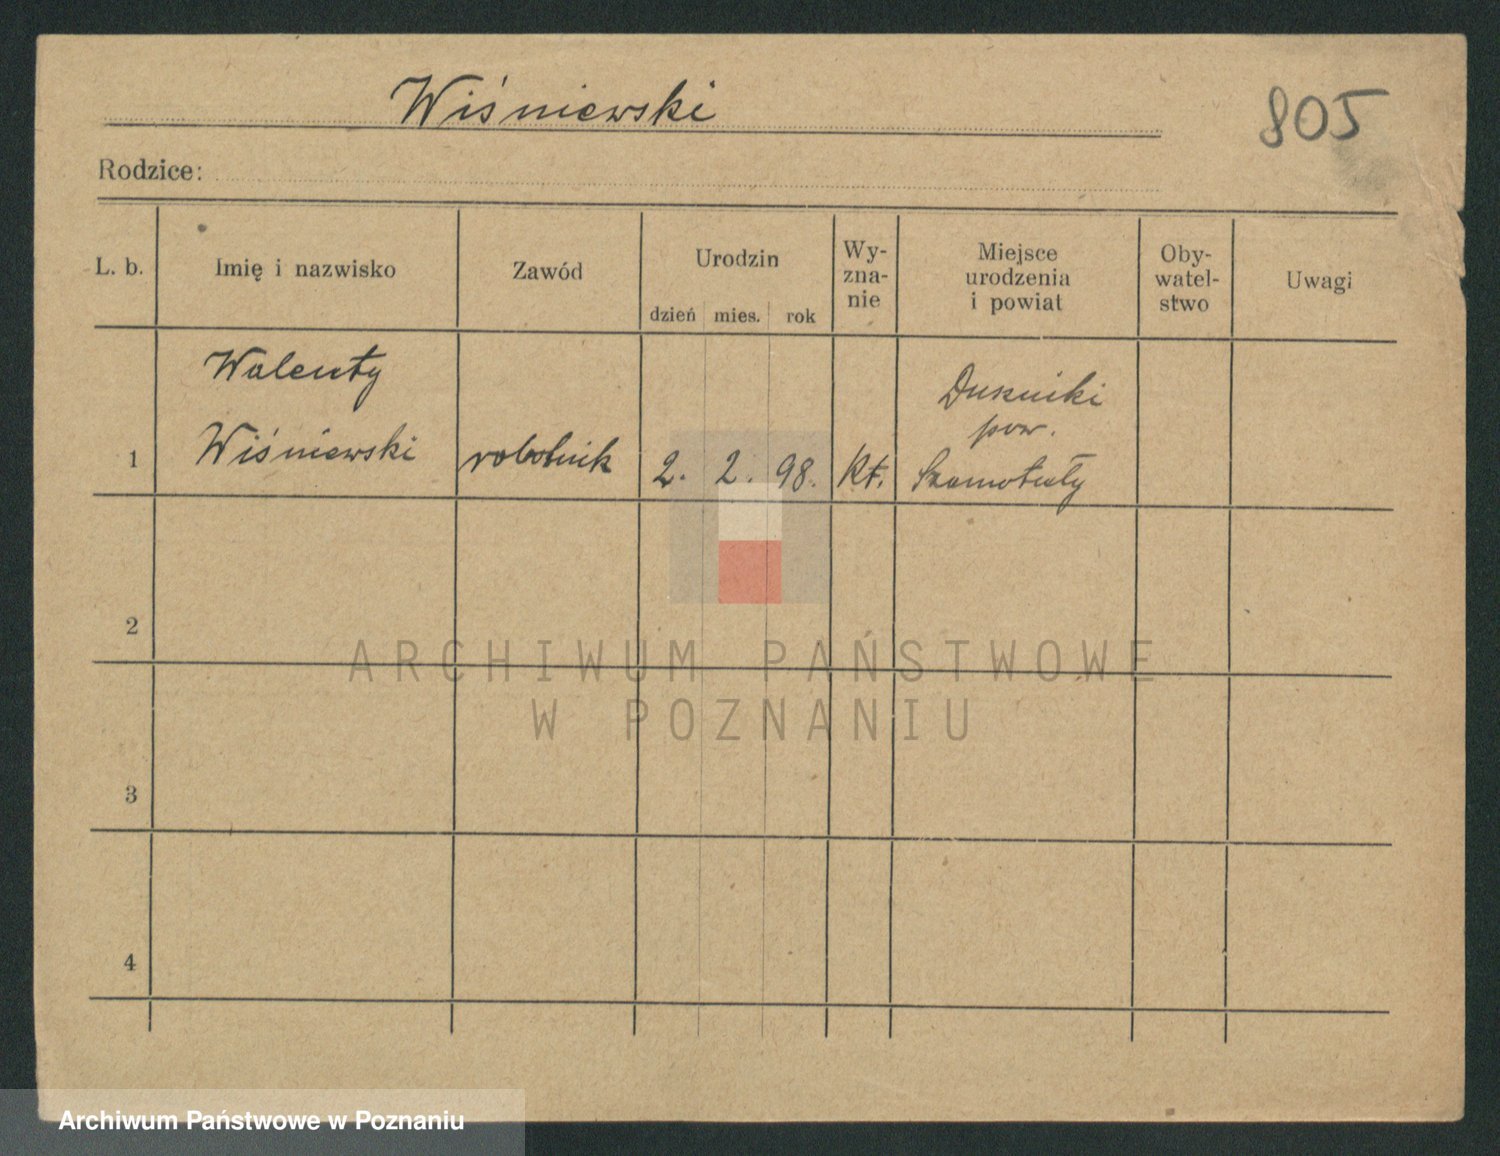 Wiśniewski
805
Rodzice:
L. b.
Imię i nazwisko
Zawód
Urodzin
dzień mies. rok
Wy-
zna-
nie
Miejsce
urodzenia
i powiat
Oby-
watel-
stwo
Uwagi
1
Walenty
Wiśniewski
robotnik
2. 2. 98.
Kt.
Duszniki
pow.
Szamotuły
2
3
4
ARCHIWUM PAŃSTWOWE
W POZNANIU
Archiwum Państwowe w Poznaniu